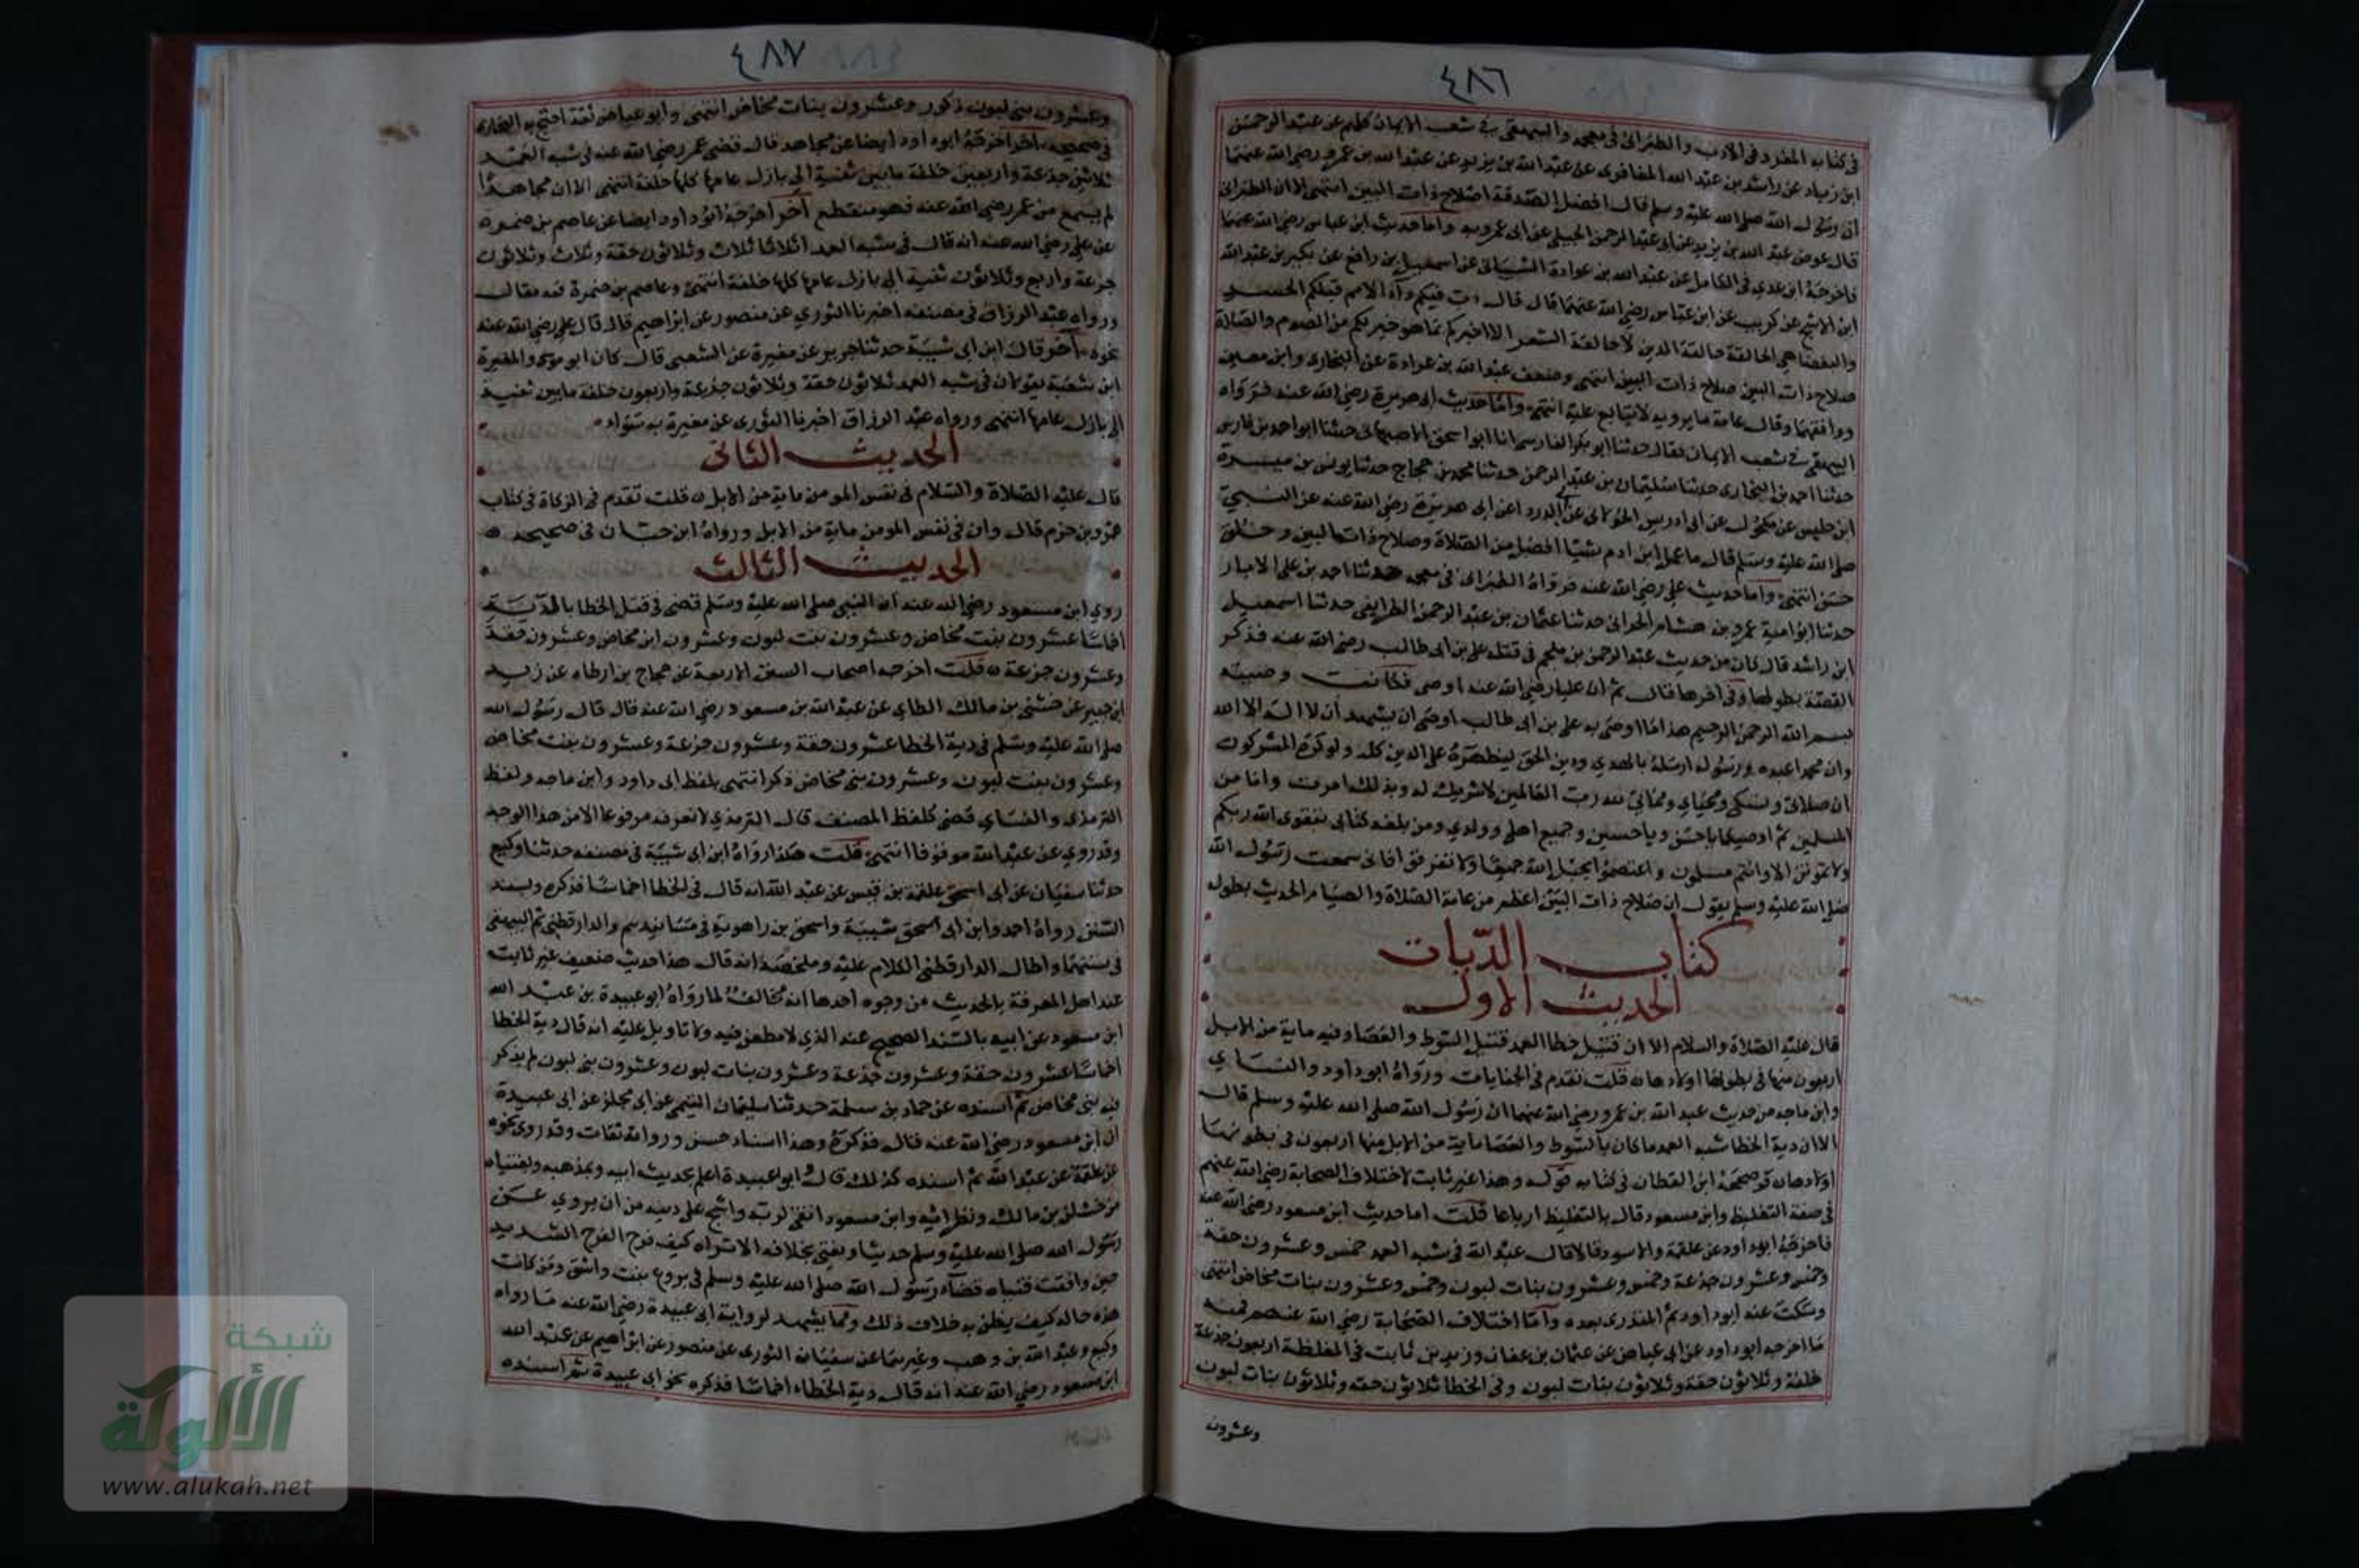 ٤٨٦
في كتابه المفرد في الادب والطبراني في معجمه والبيهقي في شعب الايمان كلهم عن عبد الرحمن
ابن زياد عن راشد بن عبد الله المعافري عن عبد الله بن يزيد عن عبد الله بن عمرو رضي الله عنهما
ان رسول الله صلى الله عليه وسلم قال افضل الصدقة اصلاح ذات البين انتهى الا ان الطبراني
قال عوض عبد الله بن يزيد عن ابي عبد الرحمن الحبلي عن ابن عمرو به واما حديث ابن عباس رضي الله عنهما
فاخرجه ابن عدي في الكامل عن عبد الله بن عرادة الشيباني عن اسمعيل بن رافع عن بكير بن عبد الله
ابن الاشج عن كريب عن ابن عباس رضي الله عنهما قال قال دب فيكم داء الامم قبلكم الحسد
والبغضا هي الحالقة حالقة الدين لا حالقة الشعر الا اخبركم بما هو خير لكم من الصوم والصلاة
صلاح ذات البين صلاح ذات البين انتهى وضعف عبد الله بن عرادة عن البخاري وابن معين
ووافقهما وقال عامة ما يرويه لا يتابع عليه انتهى واما حديث ابي هريرة رضي الله عنه فرواه
البيهقي في شعب الايمان فقال حدثنا ابو بكر الفارسي انا ابو اسحق الاصبهاني حدثنا ابو احمد بن فارس
حدثنا احمد بن البخاري حدثنا سليمان بن عبد الرحمن حدثنا محمد بن حجاج حدثنا يونس بن ميسرة
ابن حلبس عن مكحول عن ابي ادريس الخولاني عن ابي الدرداء عن ابي هريرة رضي الله عنه عن النبي
صلى الله عليه وسلم قال ما عمل ابن ادم شيئا افضل من الصلاة وصلاح ذات البين وخلق
حسن انتهى واما حديث علي رضي الله عنه فرواه الطبراني في معجمه حدثنا احمد بن علي الابار
حدثنا ابو امية عمرو بن هشام الحراني حدثنا عثمان بن عبد الرحمن الطرايفي حدثنا اسمعيل
ابن راشد قال كان من حديث عبد الرحمن بن ملجم في قتله علي بن ابي طالب رضي الله عنه فذكر
القصة بطولها وفي اخرها قال ثم ان عليا رضي الله عنه اوصى فكانت وصيته
بسم الله الرحمن الرحيم هذا ما اوصى به علي بن ابي طالب اوصى ان يشهد أن لا اله الا الله
وان محمدا عبده ورسوله ارسله بالهدي ودين الحق ليظهره على الدين كله ولو كره المشركون
ان صلاتي ونسكي ومحياي ومماتي لله رب العالمين لا شريك له وبذلك امرت وانا من
المسلمين ثم اوصيكما يا حسن ويا حسين وجميع اهلي وولدي ومن بلغه كتابي بتقوى الله ربكم
ولا تموتن الا وانتم مسلمون واعتصموا بحبل الله جميعا ولا تفرقوا فاني سمعت رسول الله
صلى الله عليه وسلم يقول ان صلاح ذات البين اعظم من عامة الصلاة والصيام الحديث بطوله
كتاب الديات
الحديث الاول
قال عليه الصلاة والسلام الا ان قتيل خطا العمد قتيل السوط والعصا وفيه ماية من الابل
اربعون منها في بطونها اولادها قلت تقدم في الجنايات ورواه ابو داود والنساي
وابن ماجه من حديث عبد الله بن عمرو رضي الله عنهما ان رسول الله صلى الله عليه وسلم قال
الا ان دية الخطا شبه العمد ما كان بالسوط والعصا ماية من الابل منها اربعون في بطونها
اولادها وصححه ابن القطان في كتابه قوله وهذا غير ثابت لاختلاف الصحابة رضي الله عنهم
في صفة التغليظ وابن مسعود قال بالتغليظ ارباعا قلت اما حديث ابن مسعود رضي الله عنه
فاخرجه ابو داود عن علقمة والاسود قالا قال عبد الله في شبه العمد خمس وعشرون حقة
وخمس وعشرون جذعة وخمس وعشرون بنات لبون وخمس وعشرون بنات مخاض انتهى
وسكت عنه ابو داود ثم المنذري بعده واما اختلاف الصحابة رضي الله عنهم فمنه
ما اخرجه ابو داود عن ابي عياض عن عثمان بن عفان وزيد بن ثابت في المغلظة اربعون جذعة
خلفة وثلاثون حقة وثلاثون بنات لبون وفي الخطا ثلاثون حقه وثلاثون بنات لبون
وعشرون
٤٨٧
وعشرون بني لبون ذكور وعشرون بنات مخاض انتهى وابو عياض ثقة احتج به البخاري
في صحيحه اخر اخرجه ابو داود ايضا عن مجاهد قال قضى عمر رضي الله عنه في شبه العمد
ثلاثين جذعة واربعين خلفة ما بين ثنية الى بازل عامها كلها خلفة انتهى الا ان مجاهدا
لم يسمع من عمر رضي الله عنه فهو منقطع آخر اخرجه ابو داود ايضا عن عاصم بن ضمره
عن علي رضي الله عنه انه قال في شبه العمد اثلاثا ثلاث وثلاثون حقة وثلاث وثلاثون
جزعة واربع وثلاثون ثنية الى بازل عامها كلها خلفة انتهى وعاصم بن ضمرة فيه مقال
ورواه عبد الرزاق في مصنفه اخبرنا الثوري عن منصور عن ابراهيم قال قال علي رضي الله عنه
نحوه آخر قال ابن ابي شيبة حدثنا جرير عن مغيرة عن الشعبي قال كان ابو موسى والمغيرة
ابن شعبة يقولان في شبه العمد ثلاثون حقة وثلاثون جذعة واربعون خلفة ما بين ثنية
الى بازل عامها انتهى ورواه عبد الرزاق اخبرنا الثوري عن مغيرة به سواء
الحديث الثاني
قال عليه الصلاة والسلام في نفس المومن ماية من الابل قلت تقدم في الزكاة في كتاب
عمرو بن حزم قال وان في نفس المومن ماية من الابل ورواه ابن حبان في صحيحه
الحديث الثالث
روي ابن مسعود رضي الله عنه ان النبي صلى الله عليه وسلم قضى في قتل الخطا بالدية
اخماسا عشرون بنت مخاض وعشرون بنت لبون وعشرون ابن مخاض وعشرون حقة
وعشرون جزعة قلت اخرجه اصحاب السنن الاربعة عن حجاج بن ارطاه عن زيد
ابن جبير عن خشف بن مالك الطاي عن عبد الله بن مسعود رضي الله عنه قال قال رسول الله
صلى الله عليه وسلم في دية الخطا عشرون حقة وعشرون جزعة وعشرون بنت مخاض
وعشرون بنت لبون وعشرون بني مخاض ذكر انتهى بلفظ ابي داود وابن ماجه ولفظ
الترمذي والنساي قضى كلفظ المصنف قال الترمذي لا نعرفه مرفوعا الا من هذا الوجه
وقد روي عن عبد الله موقوفا انتهى قلت هكذا رواه ابن ابي شيبة في مصنفه حدثنا وكيع
حدثنا سفيان عن ابي اسحق علقمة بن قيس عن عبد الله انه قال في الخطا اخماسا فذكره وبسند
السنن رواه احمد وابن ابي اسحق شيبة واسحق بن راهويه في مسانيدهم والدارقطني ثم البيهقي
في سننهما واطال الدارقطني الكلام عليه وملخصه انه قال هذا حديث ضعيف غير ثابت
عند اهل المعرفة بالحديث من وجوه احدها انه مخالف لما رواه ابو عبيدة بن عبد الله
ابن مسعود عن ابيه بالسند الصحيح عنه الذي لا مطعن فيه ولا تاويل عليه انه قال دية الخطا
اخماسا عشرون حقة وعشرون جذعة وعشرون بنات لبون وعشرون بني لبون لم يذكر
فيه بني مخاض ثم اسنده عن حماد بن سلمة حدثنا سليمان التيمي عن ابي مجلز عن ابي عبيدة
ان ابن مسعود رضي الله عنه قال فذكره وهذا اسناد حسن ورواته ثقات وقد روى نحوه
عن علقمة عن عبد الله ثم اسنده كذلك قال ابو عبيدة اعلم بحديث ابيه وبمذهبه وبفتياه
من خشف بن مالك ونظرائه وابن مسعود اتقى لربه واشح على دينه من ان يروي عن
رسول الله صلى الله عليه وسلم حديثا ويفتي بخلافه الا تراه كيف فرح الفرح الشديد
حين وافقت فتياه قضآء رسول الله صلى الله عليه وسلم في بروع بنت واشق ومن كانت
هذه حاله كيف يظن به خلاف ذلك ومما يشهد لرواية ابي عبيدة رضي الله عنه ما رواه
وكيع وعبد الله بن وهب وغيرهما عن سفيان الثوري عن منصور عن ابراهيم عن عبد الله
ابن مسعود رضي الله عنه انه قال دية الخطاء اخماسا فذكره نحو ابي عبيدة ثم اسنده
شبكة
الألوكة
www.alukah.net